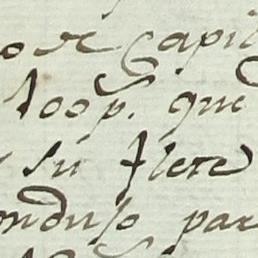 de Capit
100 p. que
su flete
ondujo par